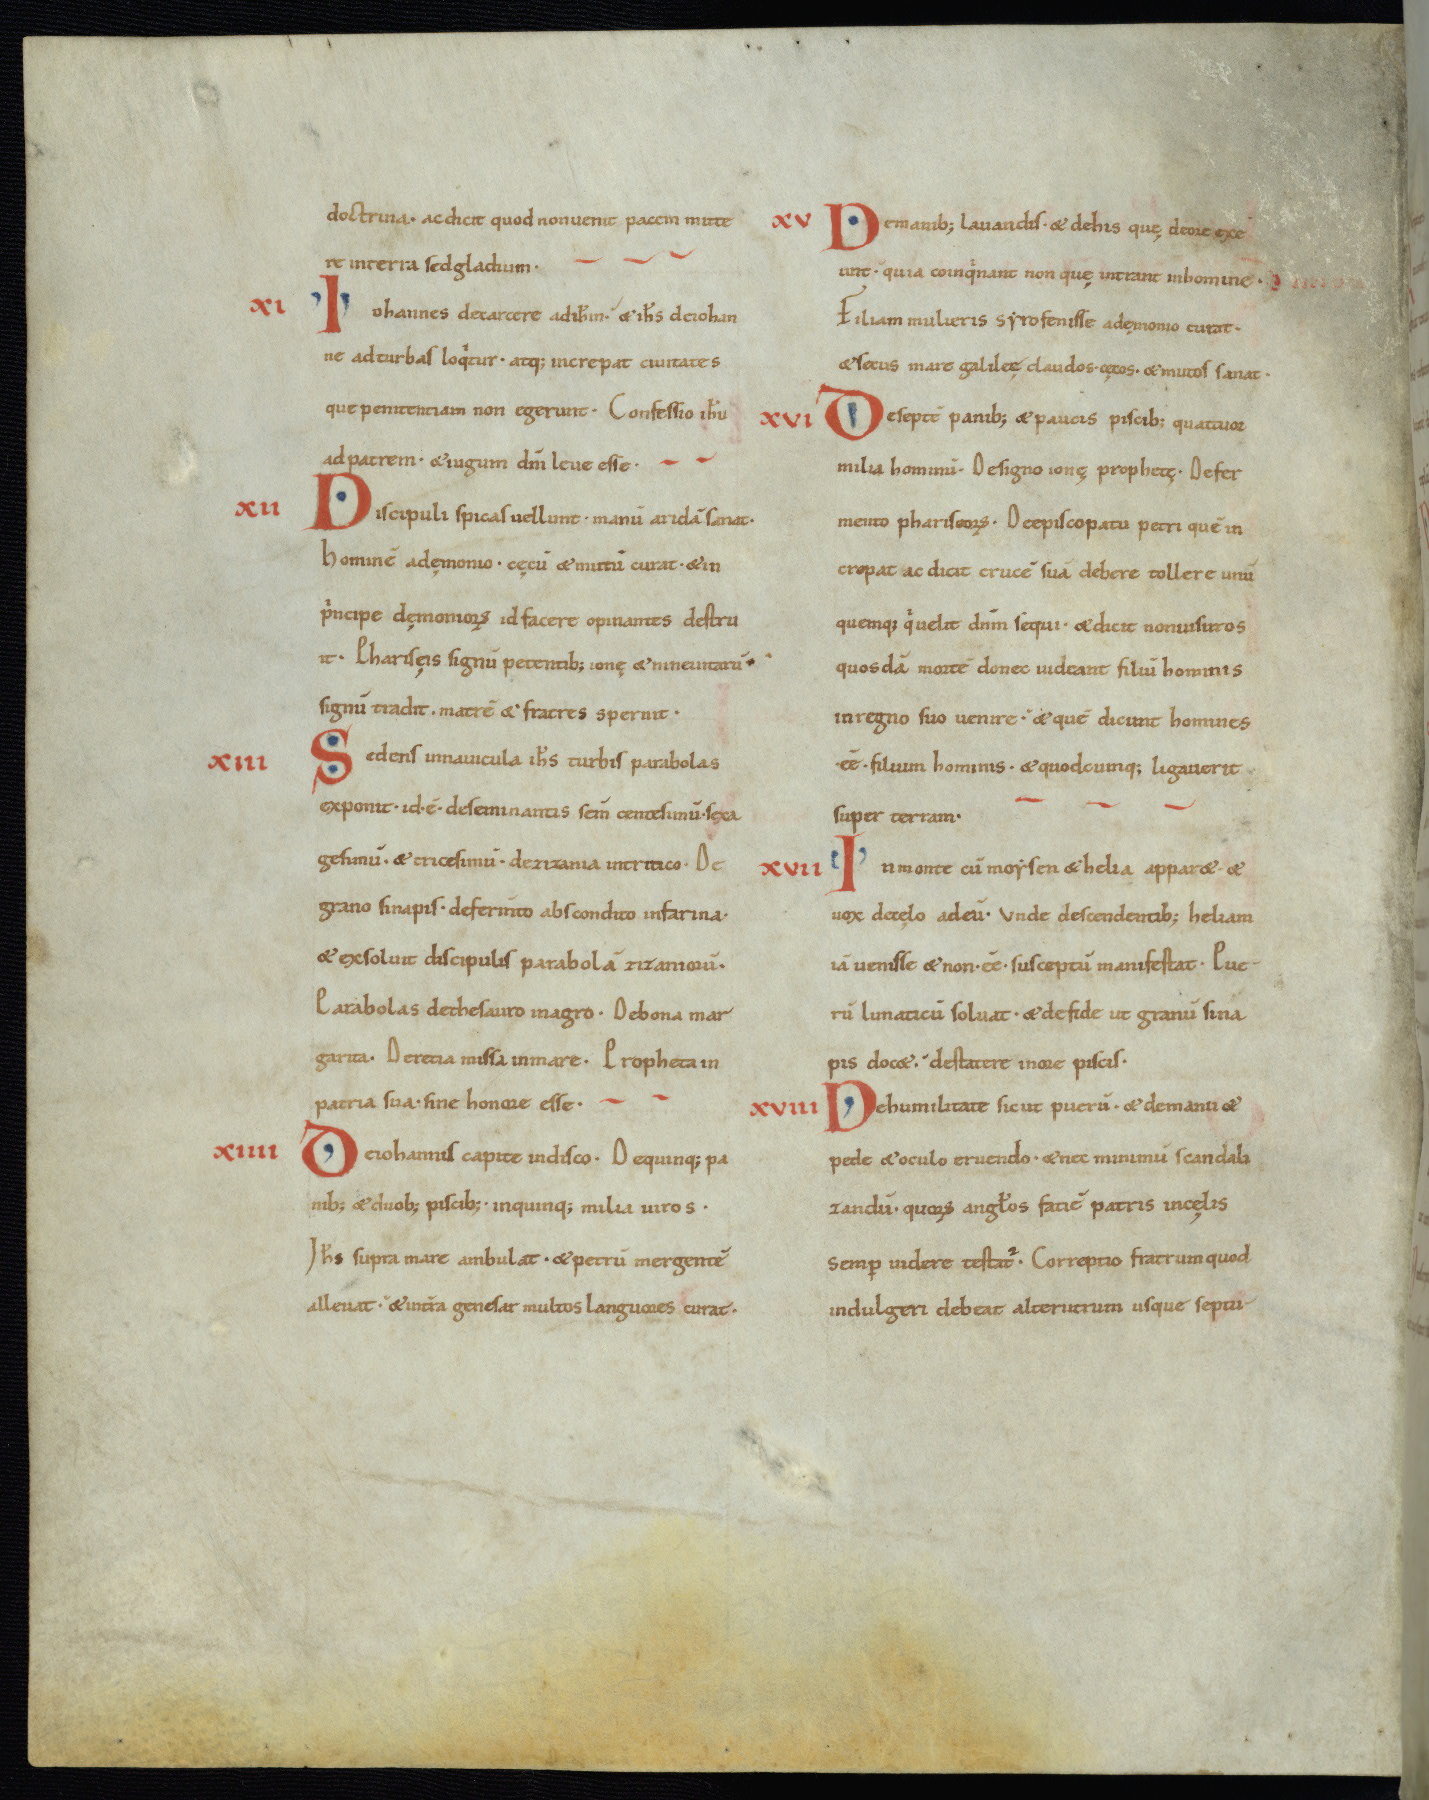 doctrina· ac dicit quod non uenit pacem mitte
re in terra sed gladium·
xi Iohannes de carcere ad ih̄m· & ih̄s de iohan
ne ad turbas loq̇tur· atq; increpat ciuitates
que penitentiam non egerunt· Confessio ih̄u
ad patrem· & iugum dn̄i leue esse·
xii Discipuli spicas uellunt· manū aridā sanat·
hominē a dęmonio· cęcū & mutū curat· & in
p̍ncipe dęmonioꝝ id facere opinantes destru
it· Pharisęis signū petentib; ionę & nineuitarū
signū tradit· matrē & fratres spernit·
xiii Sedens in nauicula ih̄s turbis parabolas
exponit· id·ē· de seminantis sem̄ centesimū· sexa
gesimū· & tricesimū· de zizania in tritico· De
grano sinapis· de fermto abscondito in farina·
& exsoluit discipulis parabolā zizaniorū·
Parabolas de thesauro in agro· De bona mar
garita· De retia missa in mare· Propheta in
patria sua· sine honore esse·
xiiii De iohannis capite in disco· De quinq; pa
nib; & duob; piscib;· in quinq; milia uiros·
Ih̄s supra mare ambulat· & petrū mergentē
alleuat· & intra genesar multos languores curat·
xv De manib; lauandis· & de his quę de ore exe
unt· quia coinq̍nant non quę intrant in hominē·
Filiam mulieris syrofenisse a dęmonio curat·
& secus mare galileę claudos· cęcos· & mutos sanat·
xvi De septē panib; & paucis piscib; quattuor
milia hominū· De signo ionę prophetę· De fer
mento phariseoꝝ· De episcopatu petri quē in
crepat ac dicit crucē suā debere tollere unū
quemq; q̍ uelit dn̄m sequi· & dicit non uisuros
quosdā mortē donec uideant filiū hominis
in regno suo uenire· & quē dicunt homines
·eē· filium hominis· & quodcumq; ligauerit
super terram·
xvii In monte cū moysen & helia appar&· &
uox de cęlo ad eū· Vnde descendentib; heliam
iā uenisse & non·eē· susceptū manifestat· Pue-
rū lunaticū soluat· & de fide ut granū sina
pis doc&· de statere in ore piscis·
xviii De humilitate sicut puerū· & de manu &
pede & oculo eruendo· & nec minimū scandali
zandū· quoꝝ angl̄os faciē patris in cęlis
semꝑ uidere testat²· Correptio fratrum quod
indulgeri debeat alterutrum usque septu-